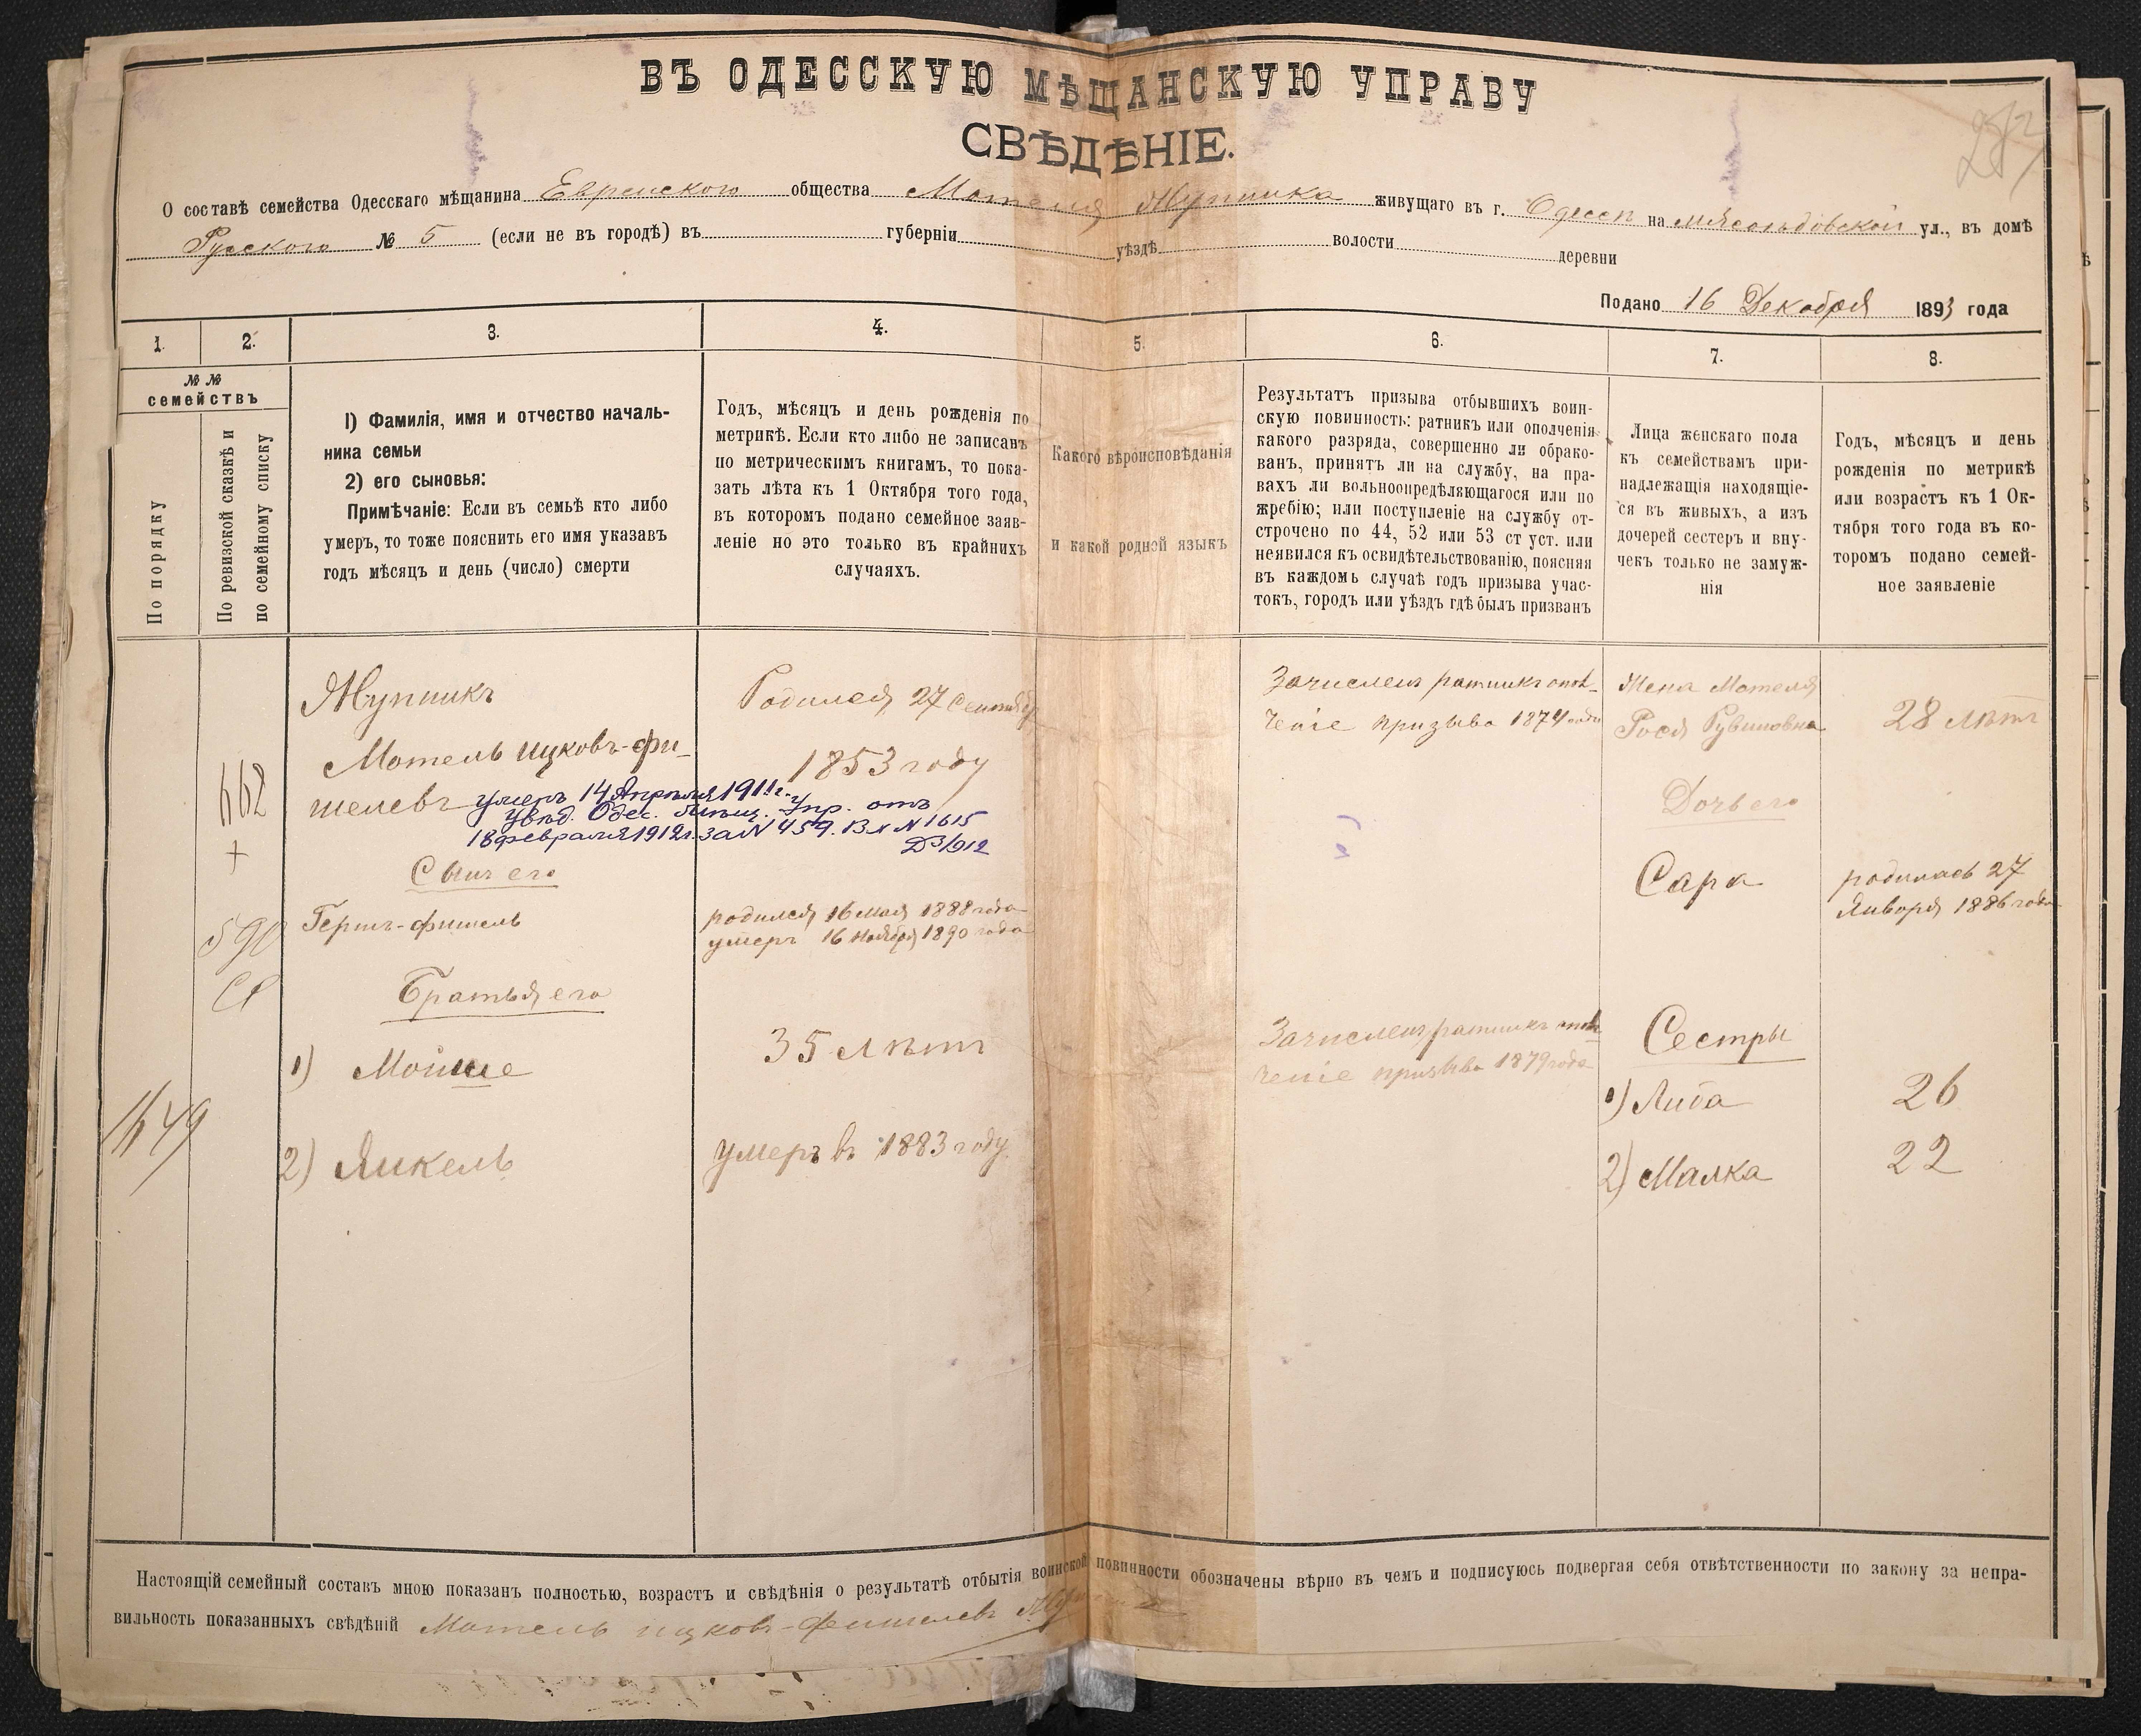 ВЪ ОДЕССКУЮ МѢЩАНСКУЮ УПРАВУ
СВѢДѢНІЕ.
О составѣ семейства Одесскаго мѣщанина Еврейского общества Мотеля Жупника живущаго въ г. Одессѣ на Мясоѣдовской ул., въ домѣ
Русского № 5 (если не въ городѣ) въ губерніи уѣздѣ волости деревни
Подано 16 Декабря 1893 года
1. 2. 3. 4. 5. 6. 7. 8.
№ №
семействъ
По порядку
По ревизской сказкѣ и
по семейному списку
1) Фамилія, имя и отчество началь-
ника семьи
2) его сыновья:
Примѣчаніе: Если въ семьѣ кто либо
умеръ, то тоже пояснить его имя указавъ
годъ мѣсяцъ и день (число) смерти
Годъ, мѣсяцъ и день рожденія по
метрикѣ. Если кто либо не записанъ
по метрическимъ книгамъ, то пока-
зать лѣта къ 1 Октября того года,
въ которомъ подано семейное заяв-
леніе но это только въ крайнихъ
случаяхъ.
Какого вѣроисповѣданія
и какой родной языкъ
Результатъ призыва отбывшихъ воин-
скую повинность: ратникъ или ополченія
какого разряда, совершенно ли обрако-
ванъ, принятъ ли на службу, на пра-
вахъ ли вольноопредѣляющагося или по
жребію; или поступленіе на службу от-
строчено по 44, 52 или 53 ст уст. или
неявился къ освидѣтельствованію, поясняя
въ каждомъ случаѣ годъ призыва учас-
токъ, городъ или уѣздъ гдѣ былъ призванъ
Лица женскаго пола
къ семействамъ при-
надлежащія находящіе-
ся въ живыхъ, а изъ
дочерей сестеръ и вну-
чекъ только не замуж-
нія
Годъ, мѣсяцъ и день
рожденія по метрикѣ
или возрастъ къ 1 Ок-
тября того года въ ко-
торомъ подано семей-
ное заявленіе
Жупникъ
Мотель Ицковъ-Фи-
шелевъ
Родился 27 Сентября
1853 году
Зачисленъ ратникъ опол-
ченіе призыва 1874 года
Жена Мотеля
Рося Рувиновна
28 лѣтъ
662
+
умеръ 14 Апрѣля 1911 г.
Увѣд. Одес. Мѣщ. Упр. отъ
18 февраля 1912 г. за № 459. Вх № 1615
1912
Дочь его
Сара
родилась 27
Января 1886 года
Сынъ его
590
Гершъ-Фишель
родился 16 мая 1888 года
умеръ 16 Ноября 1890 года
Братья его
1) Мойше
35 лѣтъ
Зачисленъ ратникъ опол-
ченіе призыва 1879 года
Сестры
1) Либа
26
1649
2) Янкель
умеръ въ 1883 году.
2) Малка
22
Настоящій семейный составъ мною показанъ полностью, возрастъ и свѣдѣнія о результатѣ отбытія воинской повинности обозначены вѣрно въ чемъ и подписуюсь подвергая себя отвѣтственности по закону за непра-
вильность показанныхъ свѣдѣній Мотель Ицковъ-Фишелевъ Жупникъ